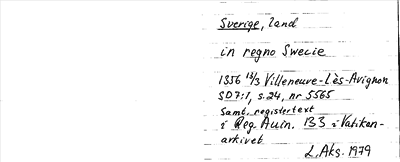 Sverige, land
in regno Swecie
1356 12/3 Villeneuve-Lès-Avignon
SD7:1, s.24, nr 5565
Samt. registertext
i Reg. Avin. 133 i Vatikan-
arkivet
2 Aks. 1979